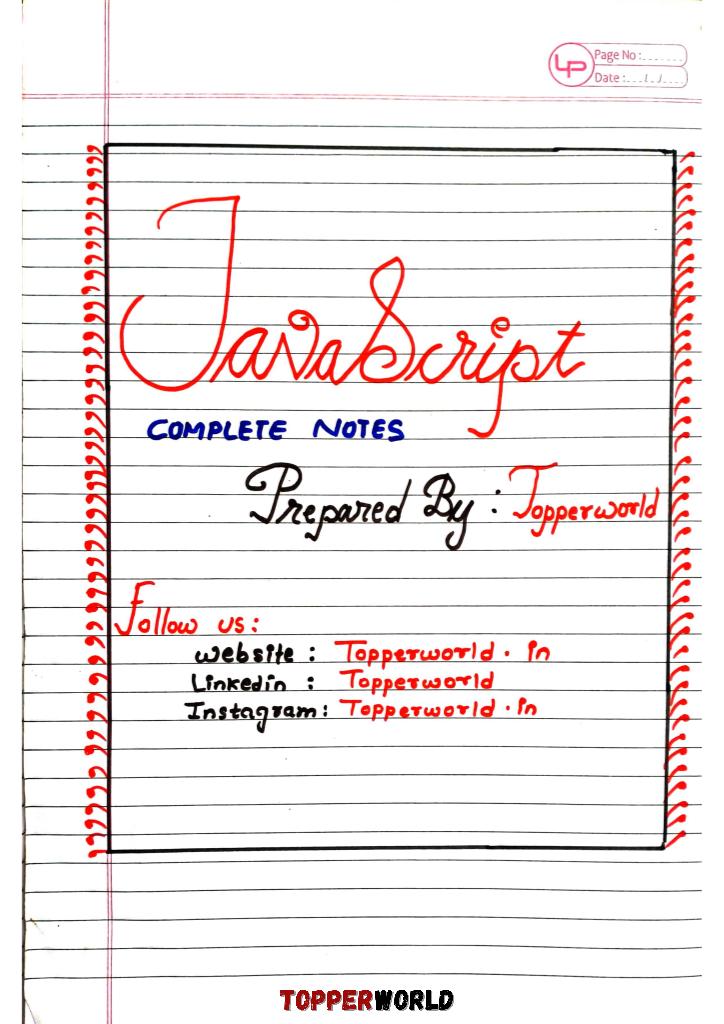 LP
Page No :.......
Date :..../..../....
JavaScript
COMPLETE NOTES
Prepared By : Topperworld
Follow us:
website : Topperworld.in
Linkedin : Topperworld
Instagram: Topperworld.in
TOPPERWORLD